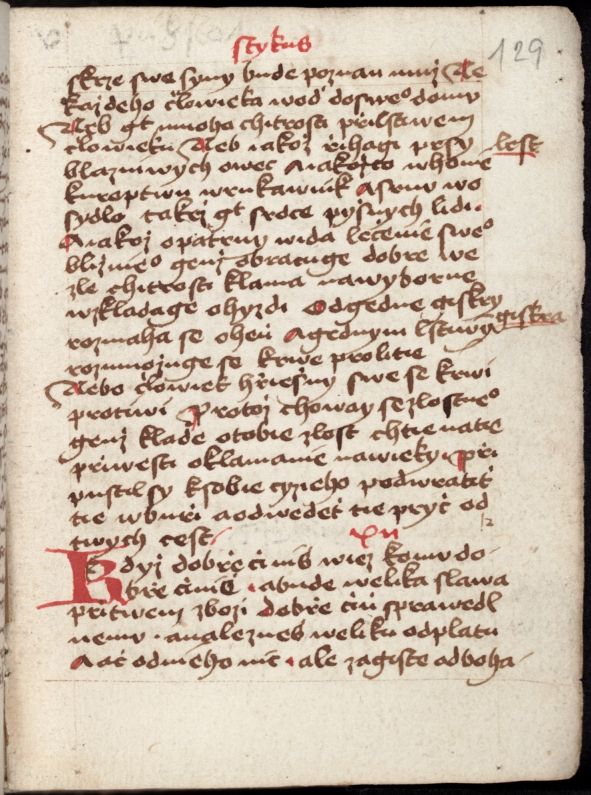 Stykus
129
skrze swe syny bude poznan muz Ne
kazdeho člowieka wod doswe° domu
Neb gt mnoho chitrosti přilstwem
člowieku Neb iakoz řihagi prsy
lest
blazniwych owec Aiakožto whonie
kuroptwu wrukawnik Asrnu wo
sydlo takez gt srdce pysnych lidi
Aiakoz opatrny wida lečenie swe°
bližnie° genz obracuge dobre we
zle chitrosti klama nawyborne
wzkladage ohyzdi Odgedne giskry
giskra
rozmaha se oheň Agednym lstiwym
rozmnožuge se krwe prolitie
Nebo člowiek hřiesny swe se krwi
protiwi Protoz choway se zlostne°
genz klade otobie zlost chtie natie
priwesti oklamanie nawieky Při
pustil sy ksobie cyzieho podwratit
tie wbuři aodwedet tie pryč od
twych cest
XII
Kdyz dobrze činiš wiez komu do
bře činiš abude welika slawa
pritwem zbozi dobře čiň sprawedl
nemu analezneš weliku odplatu
Aač odnieho nič ale zagiste odboha